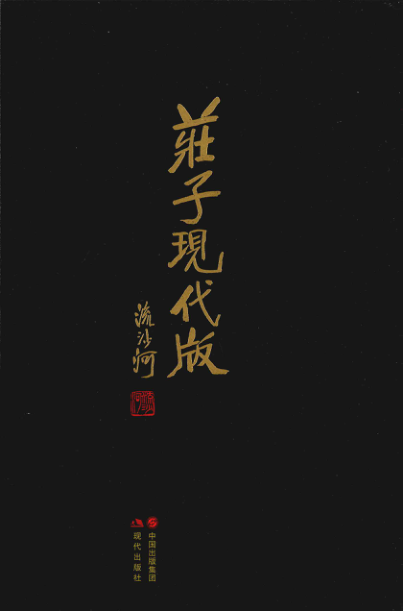 莊子現代版
流沙河
中国出版集团
现代出版社